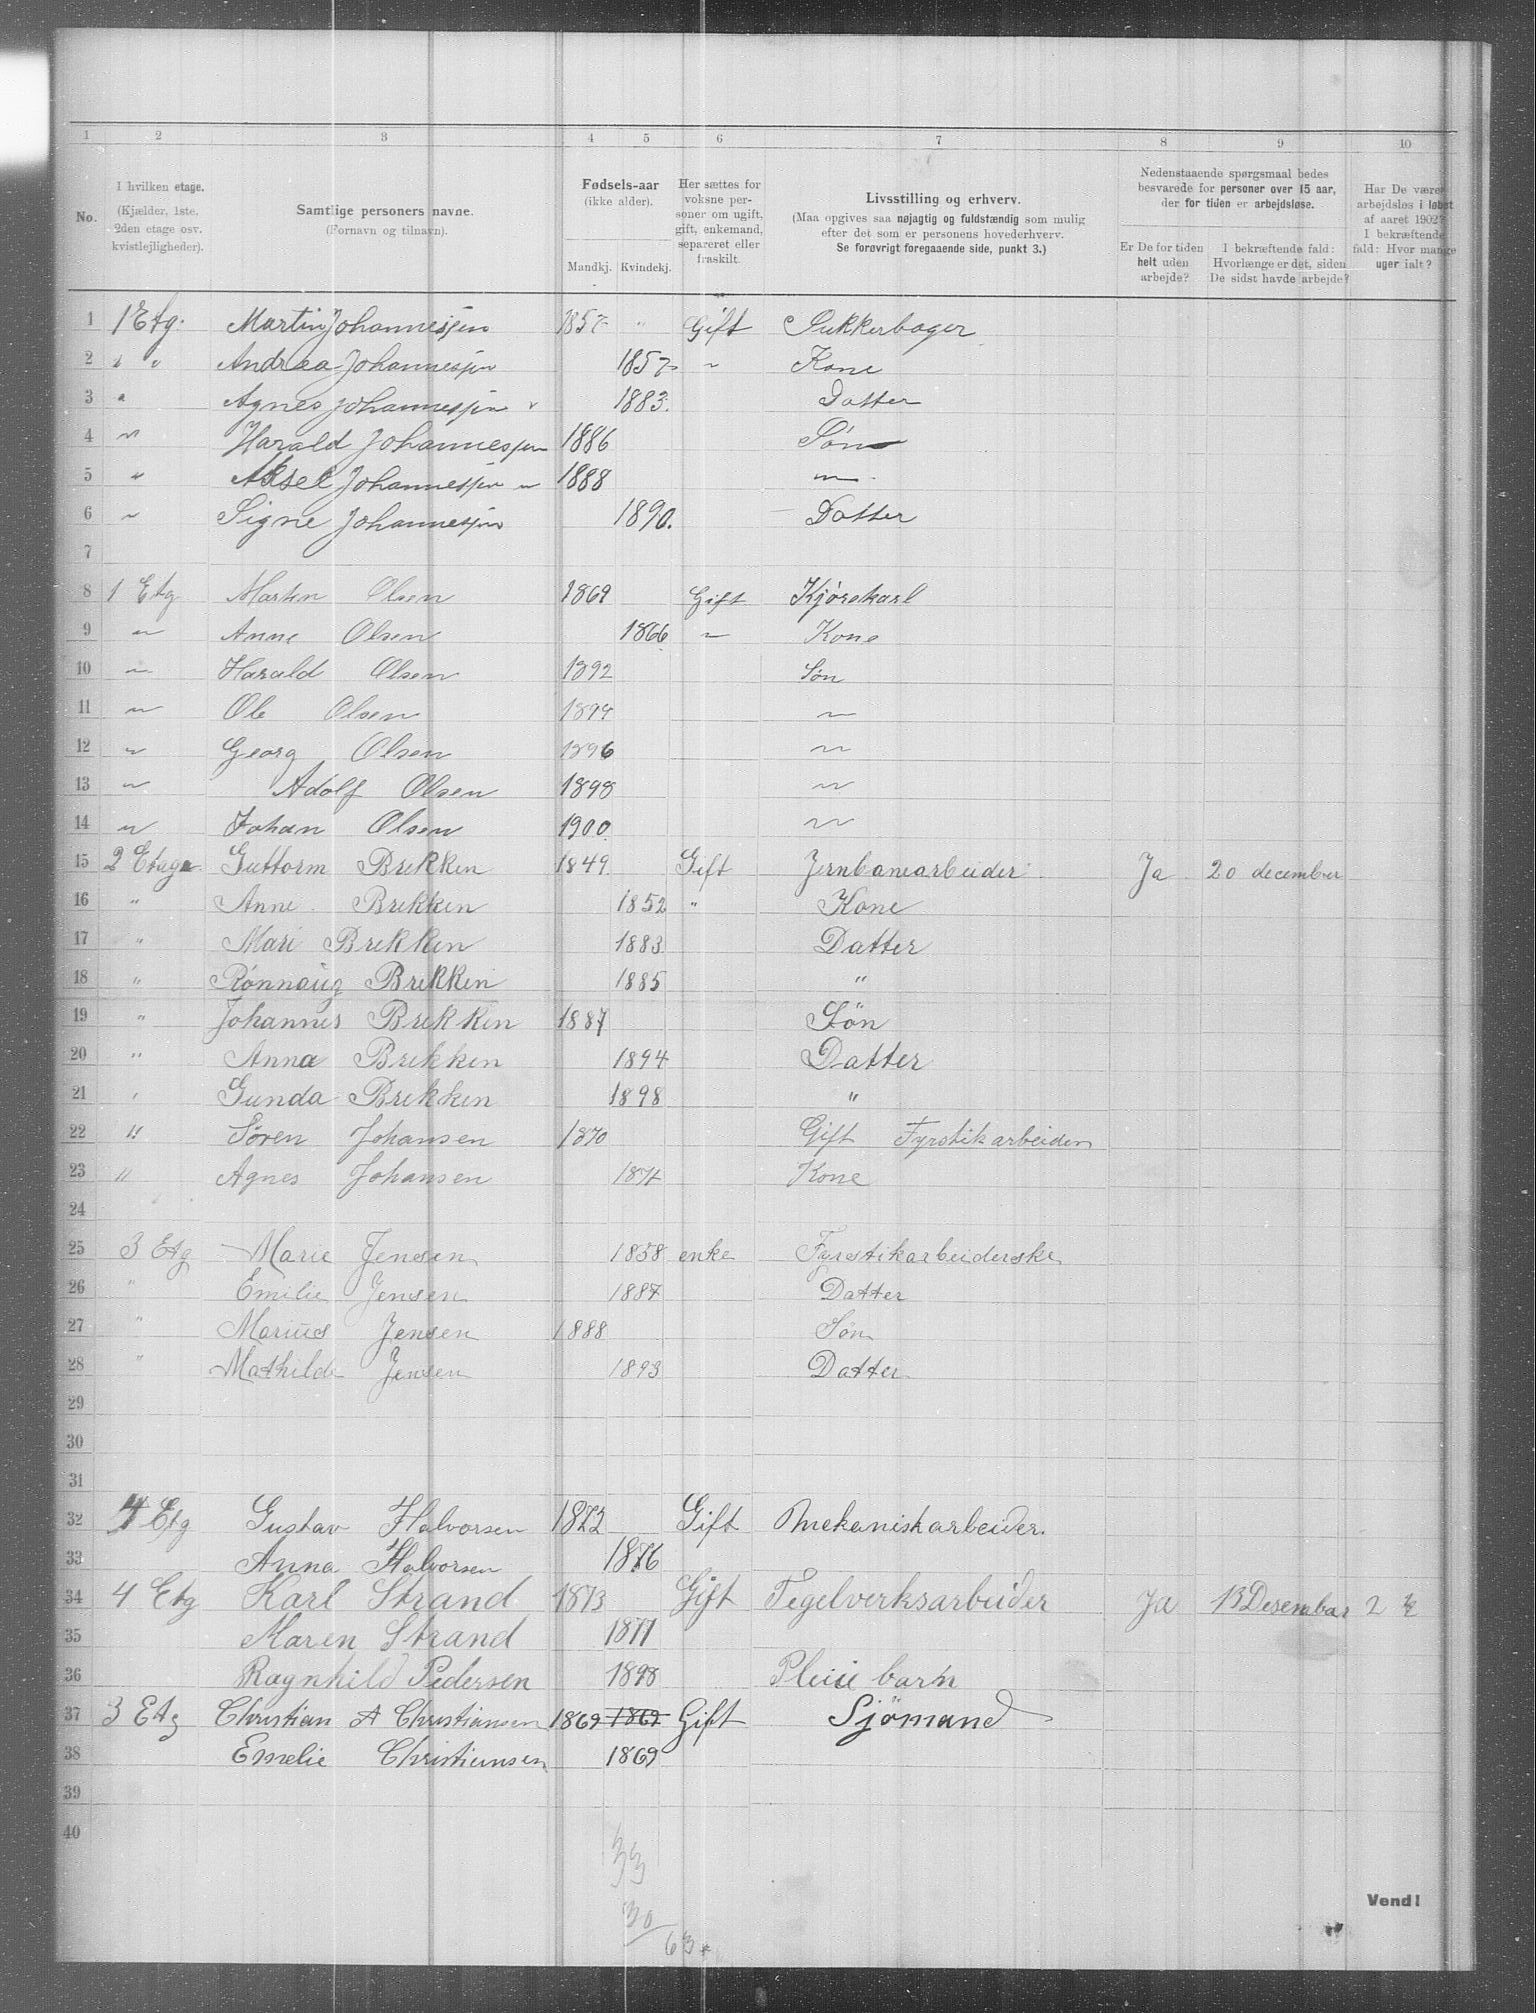 1 2 3 4 5 6 7 8 9 10
No.
I hvilken etage. (Kjælder, 1ste, 2den etage osv. kvistlejligheder).
Samtlige personers navne. (Fornavn og tilnavn).
Fødsels-aar (ikke alder). Mandkj. Kvindekj.
Her sættes for voksne personer om ugift, gift, enkemand, separeret eller fraskilt.
Livsstilling og erhverv. (Maa opgives saa nøjagtig og fuldstændig som mulig efter det som er personens hovederhverv. Se forøvrigt foregaaende side, punkt 3.)
Nedenstaaende spørgsmaal bedes besvarede for personer over 15 aar, der for tiden er arbejdsløse.
Er De for tiden helt uden arbejde?
I bekræftende fald: Hvorlænge er det, siden De sidst havde arbejde?
Har De været arbejdsløs i løbet af aaret 1902? I bekræftende fald: Hvor mange uger ialt?
1 1 Etg. Martin Johannessen 1857 " Gift Sukkerbager
2 " " Andrea Johannessen 1857 " Kone
3 " Agnes Johannessen 1883. Datter
4 " Harald Johannessen 1886 Søn
5 " Aksel Johannessen 1888 "
6 " Signe Johannessen 1890. Datter
7
8 1 Etg Martin Olsen 1869 Gift Kjørekarl
9 " Anne Olsen 1866 " Kone
10 " Harald Olsen 1892 Søn
11 " Ole Olsen 1894 "
12 " Georg Olsen 1896 "
13 " Adolf Olsen 1898 "
14 " Johan Olsen 1900 "
15 2 Etage Guttorm Brekken 1849. Gift Jernbanearbeider Ja 20 december
16 " Anne Brekken 1852 " Kone
17 " Mari Brekken 1883 Datter
18 " Rønnaug Brekken 1885 "
19 " Johannes Brekken 1887 Søn
20 " Anna Brekken 1894 Datter
21 " Gunda Brekken 1898 "
22 " Søren Johansen 1870 Gift Fyrstikarbeider
23 " Agnes Johansen 1874 Kone
24
25 3 Etg Marie Jensen 1858 enke Fyrstikarbeiderske
26 " Emilie Jensen 1887 Datter
27 " Marius Jensen 1888 Søn
28 " Mathilde Jensen 1893 Datter
29
30
31
32 4 Etg Gustav Halvorsen 1872 Gift Mekaniskarbeider.
33 Anna Halvorsen 1876
34 4 Etg Karl Strand 1873 Gift Tegelverksarbeider Ja 13 Desembar 2
35 Maren Strand 1871
36 Ragnhild Pedersen 1898 Pleie barn
37 3 Etg Christian A Christiansen 1869 1869 Gift Sjømand
38 Emelie Christiansen 1869
39
40
33
30
63
Vend!